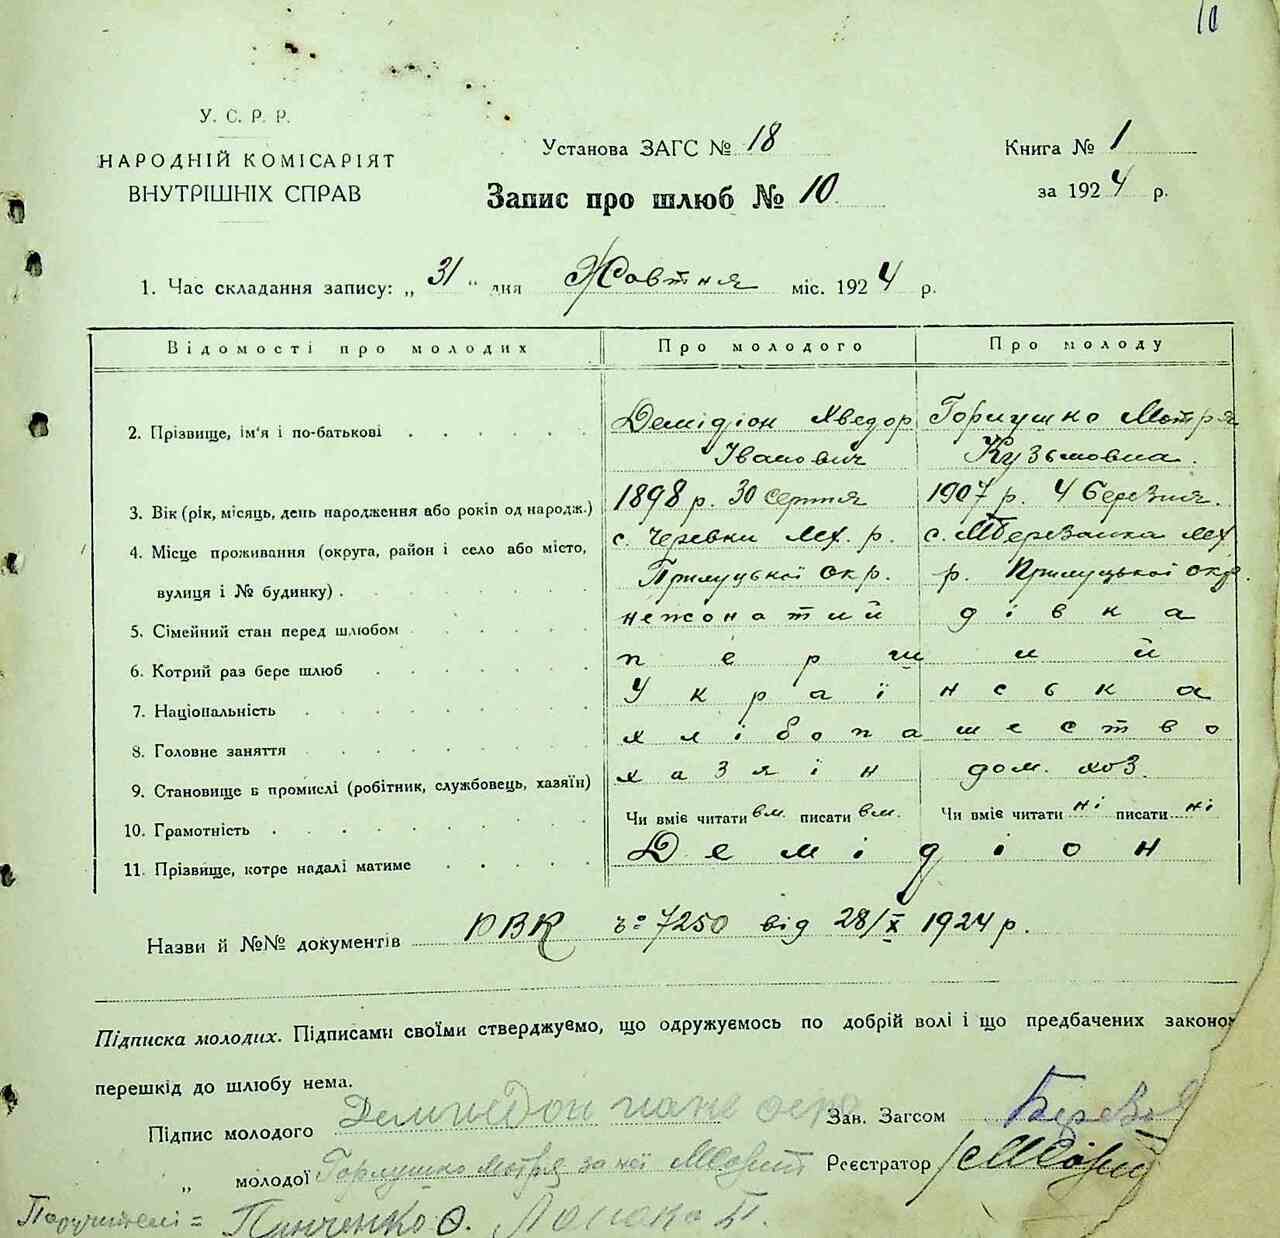 У. С. Р. Р.
НАРОДНІЙ КОМІСАРІЯТ
ВНУТРІШНІХ СПРАВ
Установа ЗАГС № 18
Книга № 1
Запис про шлюб № 10
за 1924 р.
1. Час складання запису: „ 31 " дня Жовтня міс. 1924 р.
Відомості про молодих Про молодого Про молоду
2. Прізвище, ім'я і по-батькові Демідіон Хведор Іванович Горлушко Мотря Кузьмовна
3. Вік (рік, місяць, день народження або років од народж.) 1898 р. 30 серпня 1907 р. 4 березня.
4. Місце проживання (округа, район і село або місто, с. Черевки р. с.
вулиця і № будинку) . Прилуцької окр. р. Прилуцької окр.
5. Сімейний стан перед шлюбом нежонатий дівка
6. Котрий раз бере шлюб перший
7. Національність Українська
8. Головне заняття хлібопашество
9. Становище в промислі (робітник, службовець, хазяїн) хазяїн дом. хоз.
10. Грамотність Чи вміє читати вм. писати вм. Чи вміє читати ні писати ні
11. Прізвище, котре надалі матиме Демідіон
Назви й №№ документів РВК 7250 від 28/X 1924 р.
Підписка молодих. Підписами своїми стверджуємо, що одружуємось по добрій волі і що предбачених законом
перешкід до шлюбу нема.
Підпис молодого Зав. Загсом
„ молодої Горлушко Мотря за неї Реєстратор
Поручителі = Пинченко О.